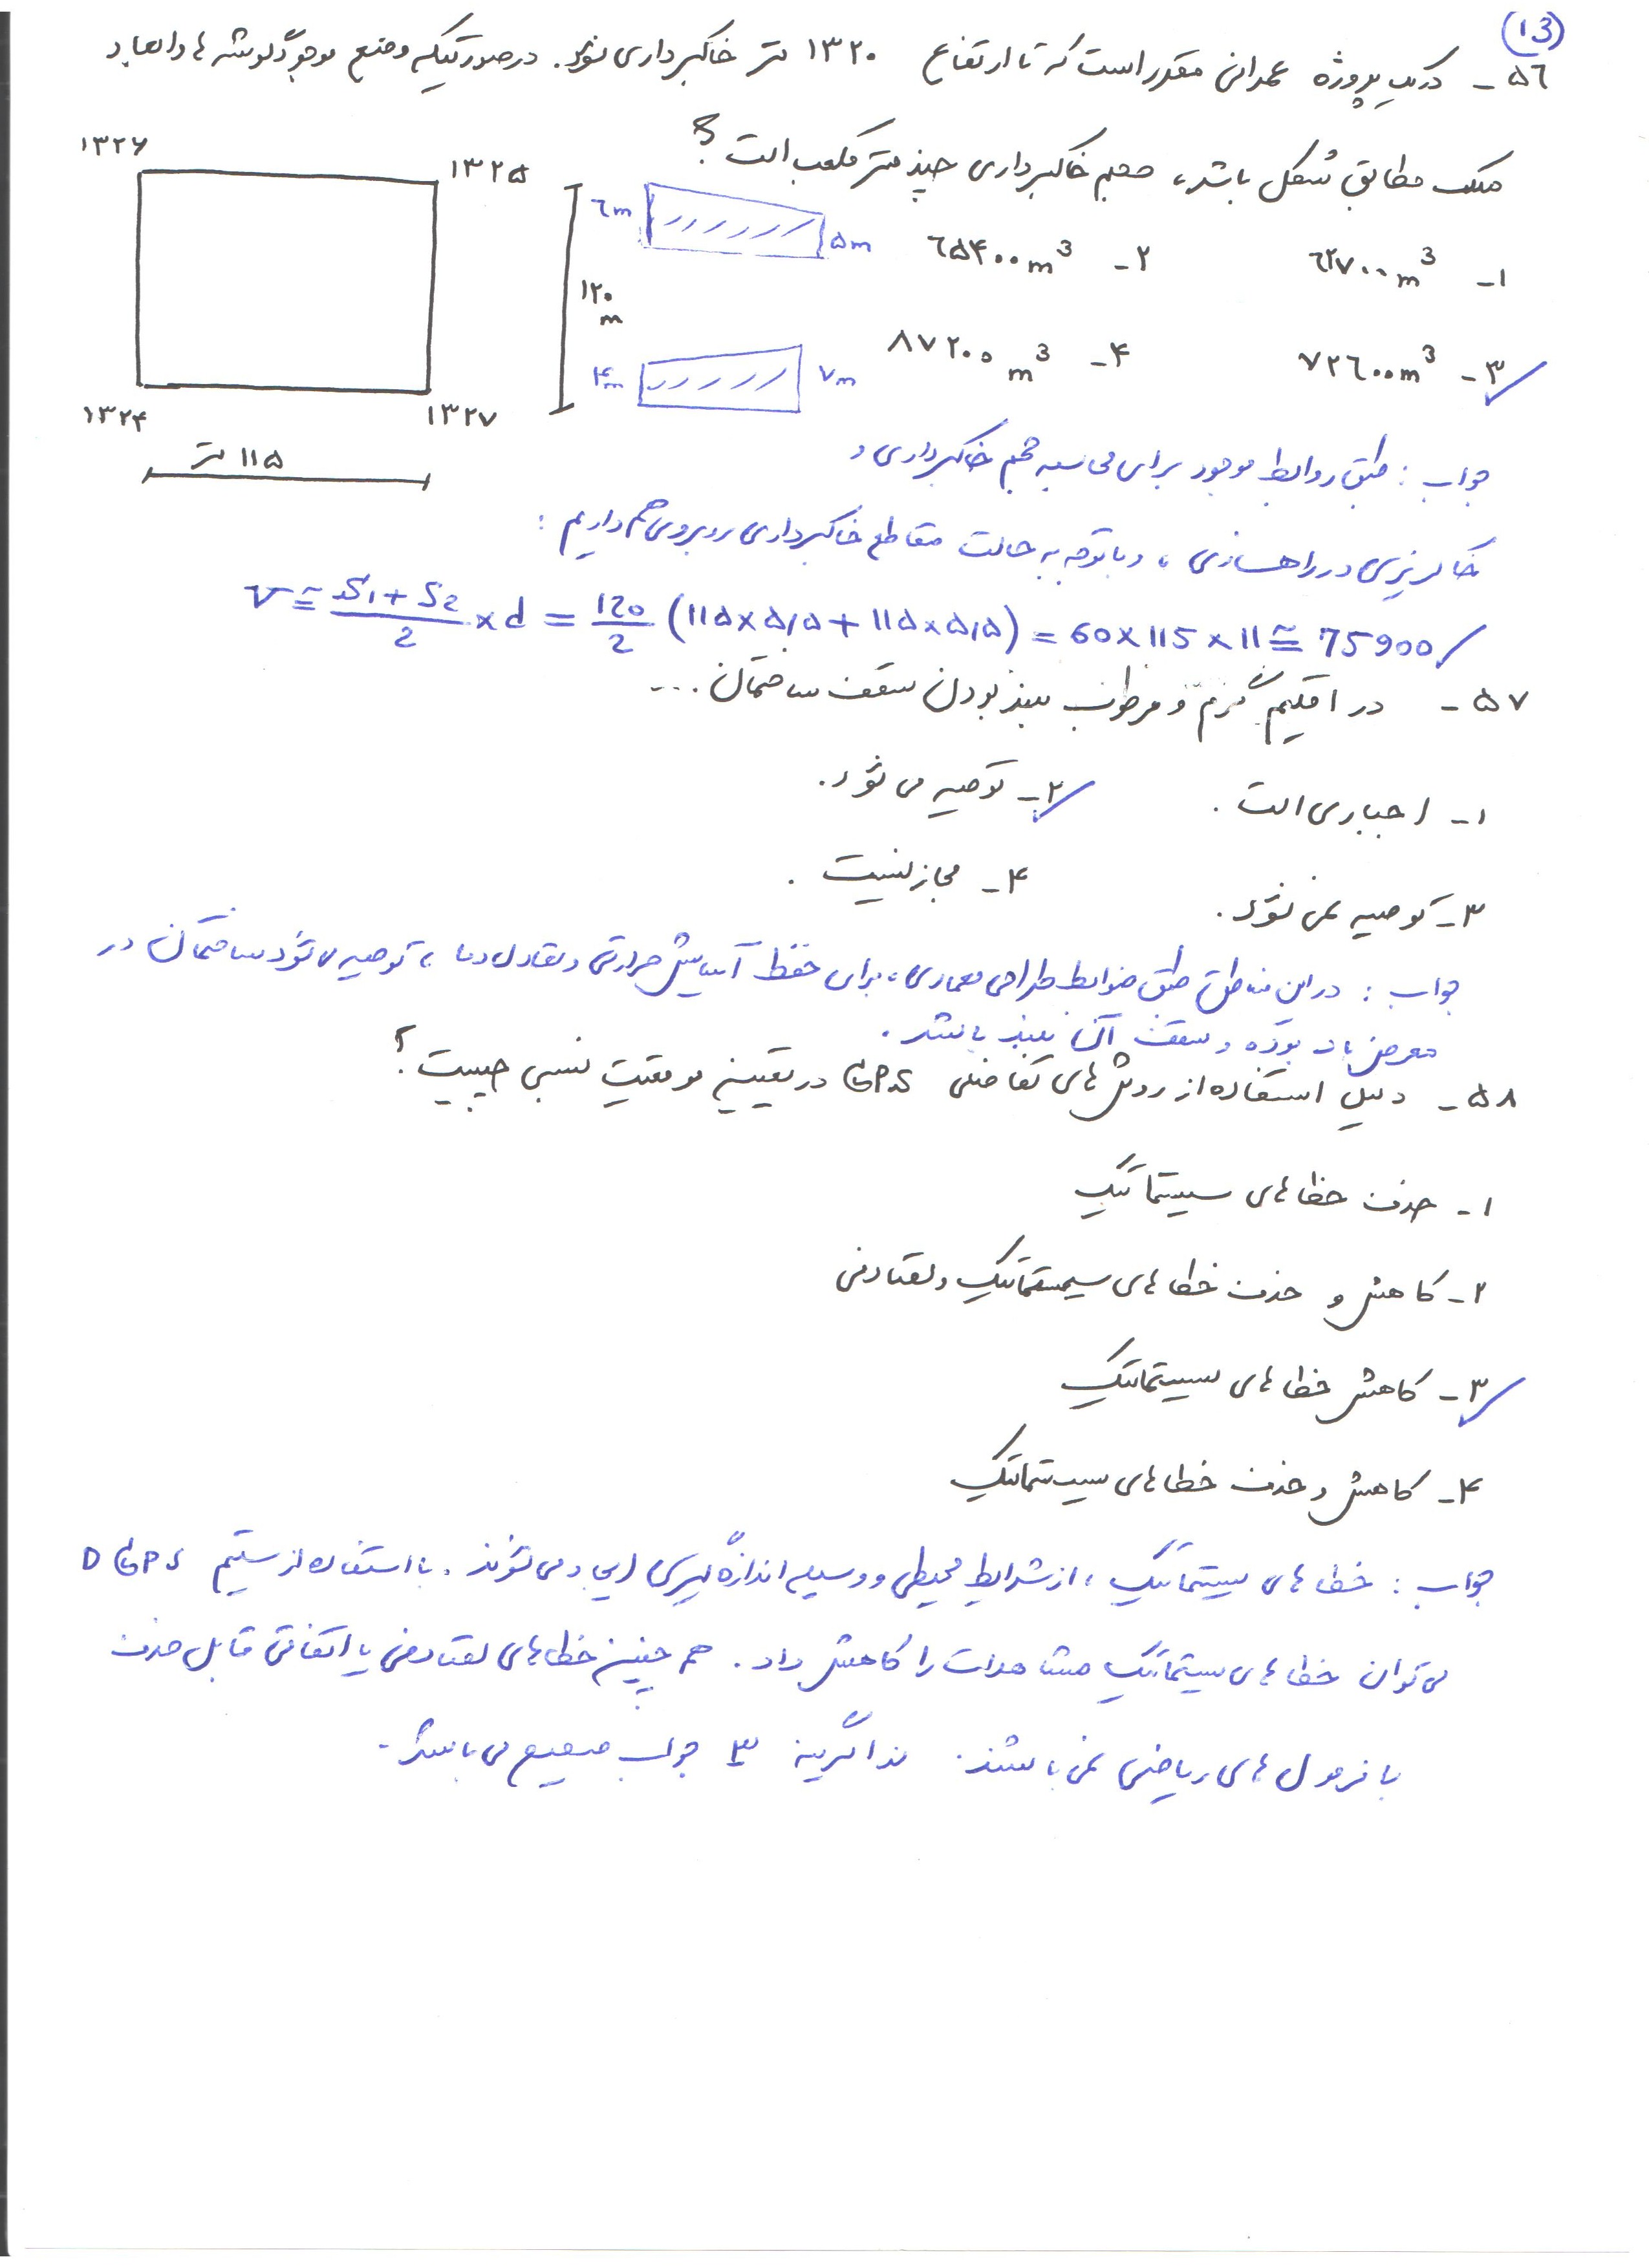 (13)
٥٦ - در یک پروژه عمرانی مقرر است که تا ارتفاع ١٣٢٠ متر خاکبرداری شود. در صورتیکه وضع موجود گوشه ها و ابعاد
ملک مطابق شکل باشد، حجم خاکبرداری چند متر مکعب است؟
١٣٢۶
١٣٢۵
١٣٢۴
١٣٢٧
١١۵ متر
١٢٠ m
٦m
۵m
۴m
٧m
١- ٦٢٧٠٠ m³
٢- ٦۵۴٠٠ m³
٣- ٧٢٦٠٠ m³
۴- ٨٧٢٠٠ m³
جواب : طبق روابط موجود برای محاسبه حجم خاکبرداری و
خاکریزی در راهسازی ، و با توجه به حالت مقاطع خاکبرداری روبروی هم داریم :
V ≅ S1 + S2 / 2 × d = 120 / 2 (١١۵×۵/۵ + ١١۵×۵/۵) = 60 × 115 × 11 ≅ 75900
۵٧ - در اقلیم گرم و مرطوب بلند بودن سقف ساختمان ...
١- اجباری است .
٢- توصیه می شود .
٣- توصیه نمی شود .
۴- مجاز نیست .
جواب : در این مناطق طبق ضوابط طراحی معماری ، برای حفظ آسایش حرارتی و تعادل دما ، توصیه می شود ساختمان در
معرض باد بوده و سقف آن بلند باشد .
۵٨ - دلیل استفاده از روش های تفاضلی GPS در تعیین موقعیت نسبی چیست ؟
١- حذف خطاهای سیستماتیک
٢- کاهش و حذف خطاهای سیستماتیک و تصادفی
٣- کاهش خطاهای سیستماتیک
۴- کاهش و حذف خطاهای سیستماتیک
جواب : خطاهای سیستماتیک ، از شرایط محیطی و وسیله اندازه گیری ایجاد می شوند . با استفاده از سیستم DGPS
می توان خطاهای سیستماتیک مشاهدات را کاهش داد . هم چنین خطاهای تصادفی یا اتفاقی قابل حذف
با فرمول های ریاضی نمی باشند . لذا گزینه ٣ جواب صحیح می باشد .